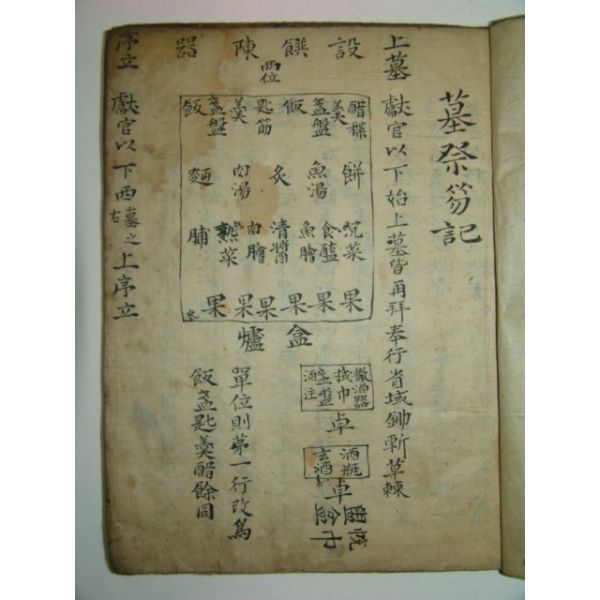 墓祭笏記
上墓 獻官以下始上墓皆再拜奉行省域鋤斬草棘
設饌陳器
兩位
醋楪 羹 盞盤 飯 匙筯 羹 盞盤 飯
餠 魚湯 炙 肉湯 麵
沉菜 食醢 魚膾 清醬 肉膾 熟菜 脯
果 果 果 果 果 果
盒 爐
徹酒器 拭巾 盞盤 酒注
卓
酒瓶 玄酒
卓
盥 巾
單位則第一行改爲
飯盞匙羹醋餘同
序立 獻官以下西墓之上序立